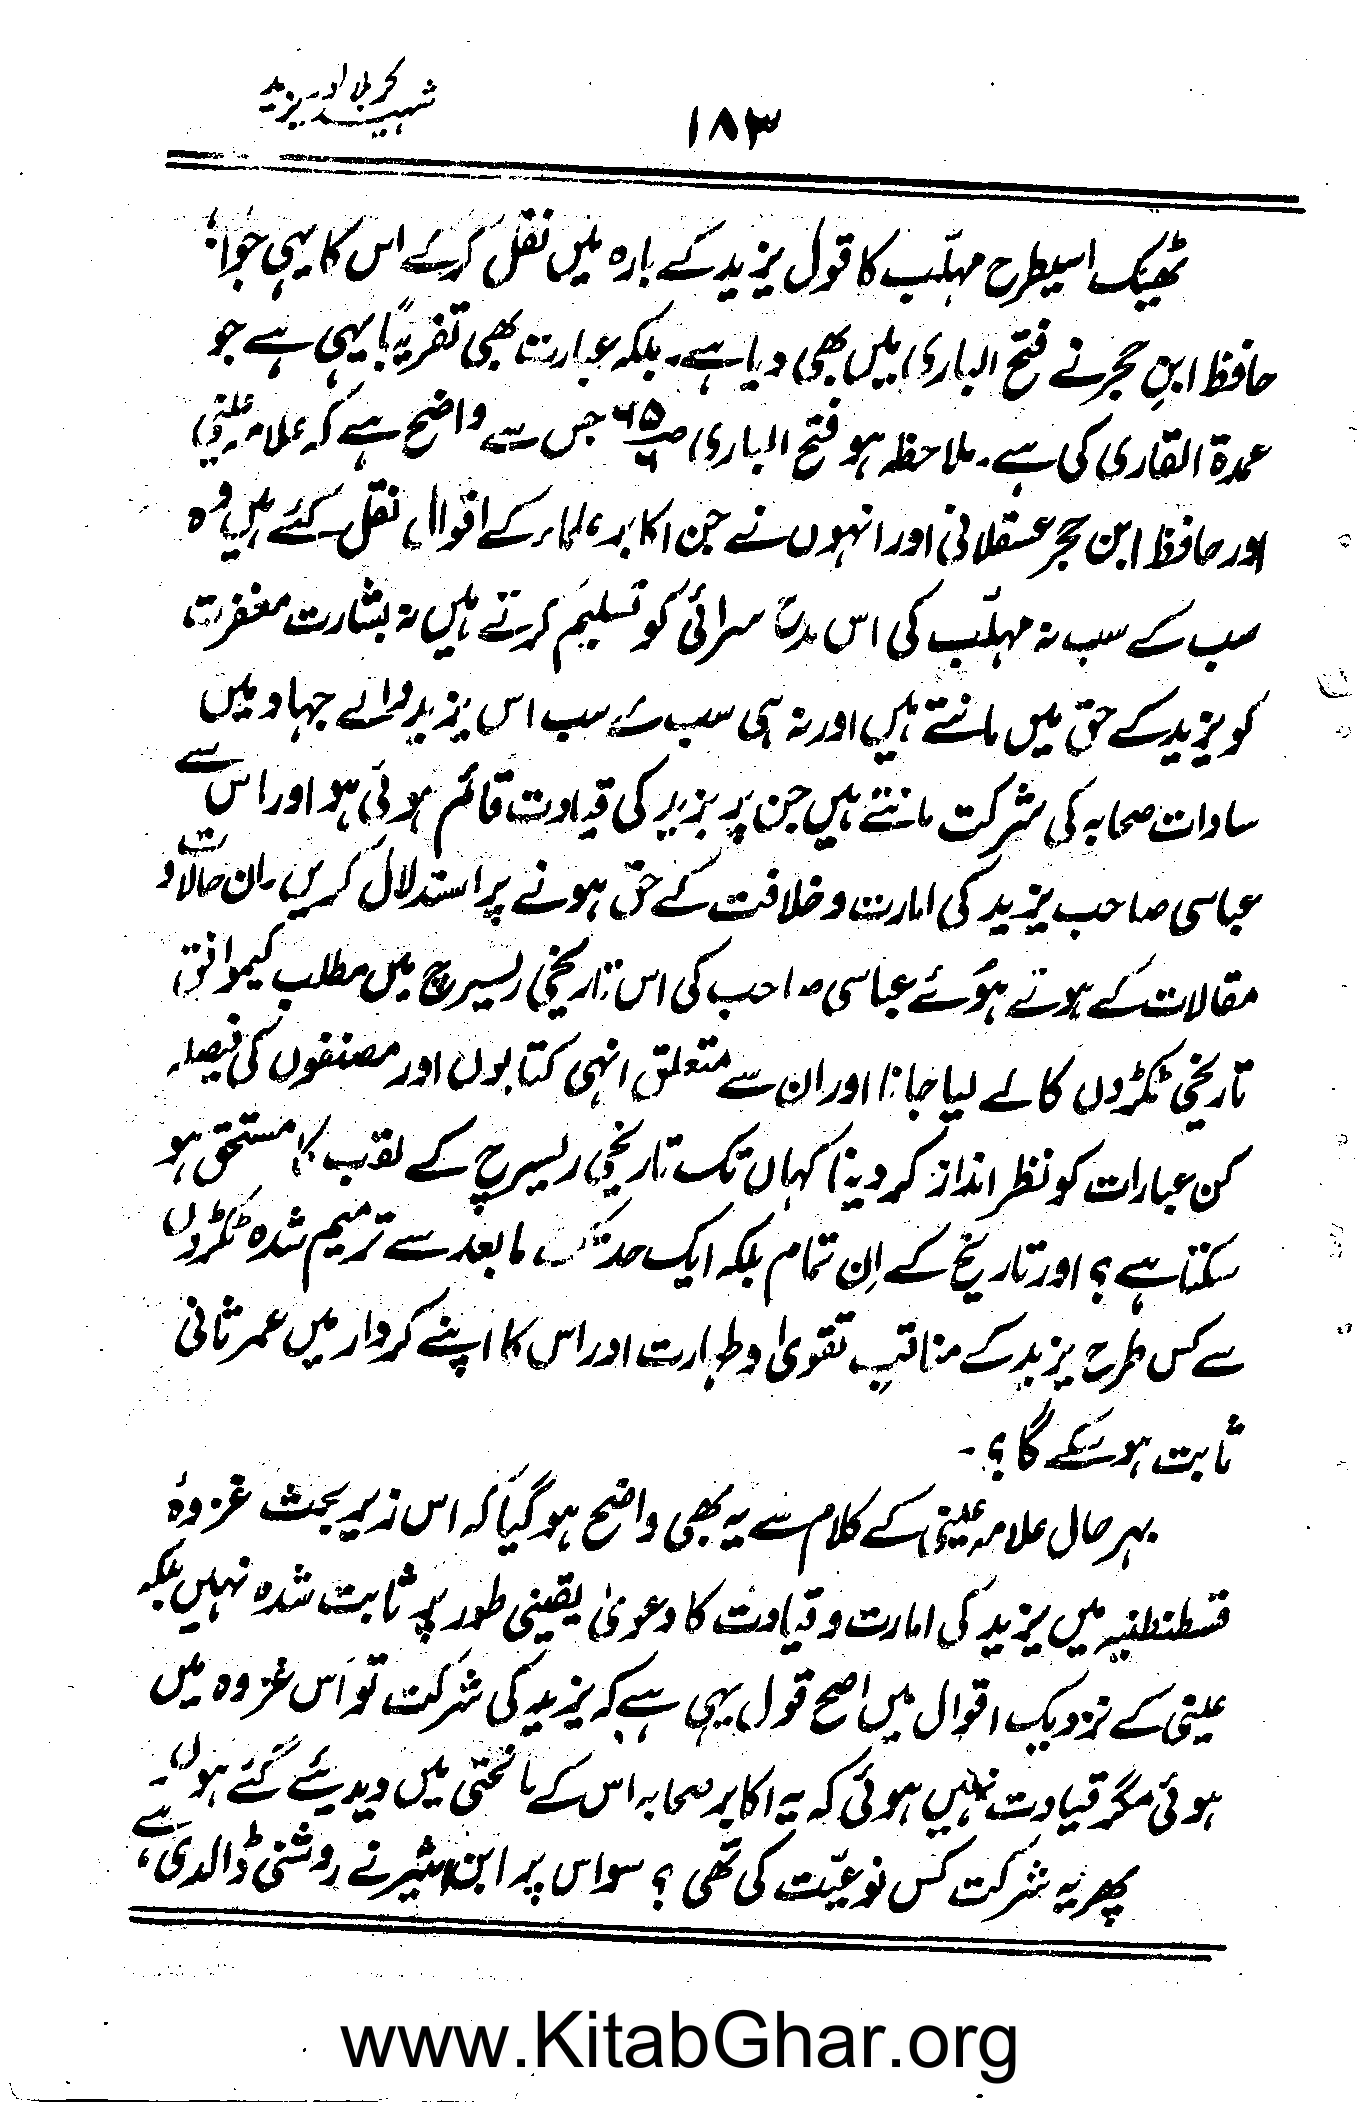 شہید کربلا اور یزید
۱۸۳
ٹھیک اسیطرح مہلّب کا قول یزید کے بارہ میں نقل کرکے اس کا یہی جواب
حافظ ابنِ حجر نے فتح الباری میں بھی دیا ہے۔ بلکہ عبارت بھی تقریباً یہی ہے جو
عمدۃ القاری کی ہے۔ ملاحظہ ہو فتح الباری ص ۶۵/۶ جس سے واضح ہے کہ علامہ عینی
اور حافظ ابن حجر عسقلانی اور انہوں نے جن اکابر علماء کے اقوال نقل کئے ہیں وہ
سب کے سب نہ مہلّب کی اس مدح سرائی کو تسلیم کرتے ہیں نہ بشارت مغفرت
کو یزید کے حق میں مانتے ہیں اور نہ ہی سب کے سب اس یزید والے جہاد میں
سادات صحابہ کی شرکت مانتے ہیں جن پر یزید کی قیادت قائم ہوئی ہو اور اس سے
عباسی صاحب یزید کی امارت و خلافت کے حق ہونے پر استدلال کریں۔ ان حالات و
مقالات کے ہوتے ہوئے عباسی صاحب کی اس تاریخی ریسرچ میں مطلب کیموافق
تاریخی ٹکڑوں کا لے لیا جانا اور ان سے متعلق انہی کتابوں اور مصنفوں کی فیصلہ
کن عبارات کو نظر انداز کر دینا کہاں تک تاریخی ریسرچ کے لقب کا مستحق ہو
سکتا ہے؟ اور تاریخ کے اِن تمام بلکہ ایک حد تک مابعد سے ترمیم شدہ ٹکڑوں
سے کس طرح یزید کے مناقبِ تقویٰ و طہارت اور اس کا اپنے کردار میں عمر ثانی
ثابت ہو سکے گا؟۔
بہر حال علامہ عینی کے کلام سے یہ بھی واضح ہوگیا کہ اس زیر بحث غزوۂ
قسطنطنیہ میں یزید کی امارت و قیادت کا دعویٰ یقینی طور پر ثابت شدہ نہیں بلکہ
عینی کے نزدیک اقوال میں اصح قول یہی ہے کہ یزید کی شرکت تو اس غزوہ میں
ہوئی مگر قیادت نہیں ہوئی کہ یہ اکابر صحابہ اس کے ماتحتی میں دیدیئے گئے ہوں۔
پھر یہ شرکت کس نوعیّت کی تھی؟ سو اس پر ابن اثیر نے روشنی ڈالدی ہے،
www.KitabGhar.org